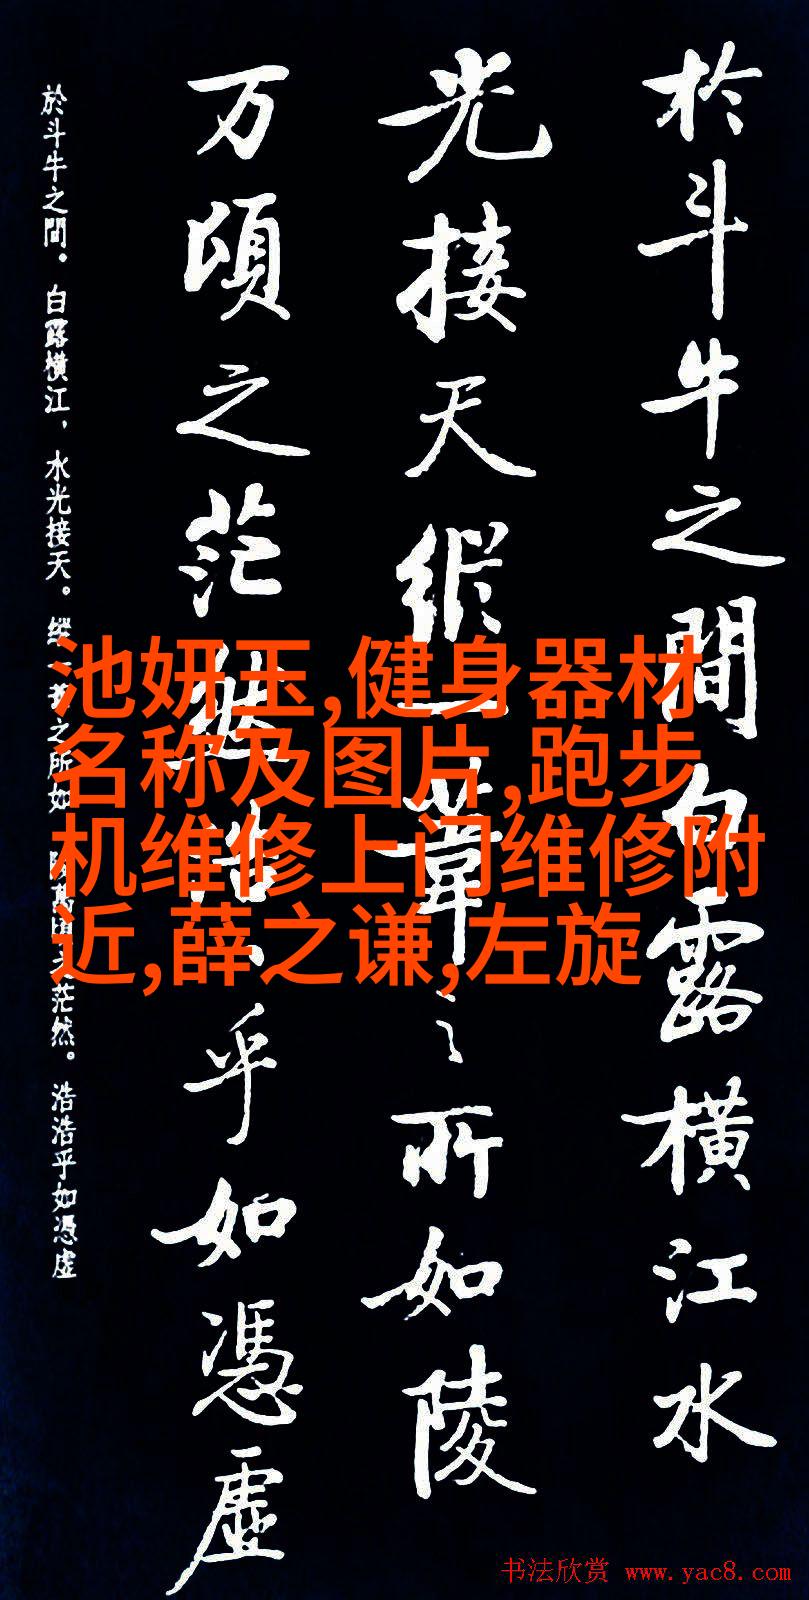 於斗牛之間白露橫江水
光接天縱一葦之所如陵
万頃之茫然浩〻乎如憑虛
於斗牛之間。白露橫江，水光接天。縱一葦之所如 陵萬頃之茫然。浩浩乎如憑虛
池妍玉,健身器材
名称及图片,跑步
机维修上门维修附
近,薛之谦,左旋
书法欣赏 www.yac8.com